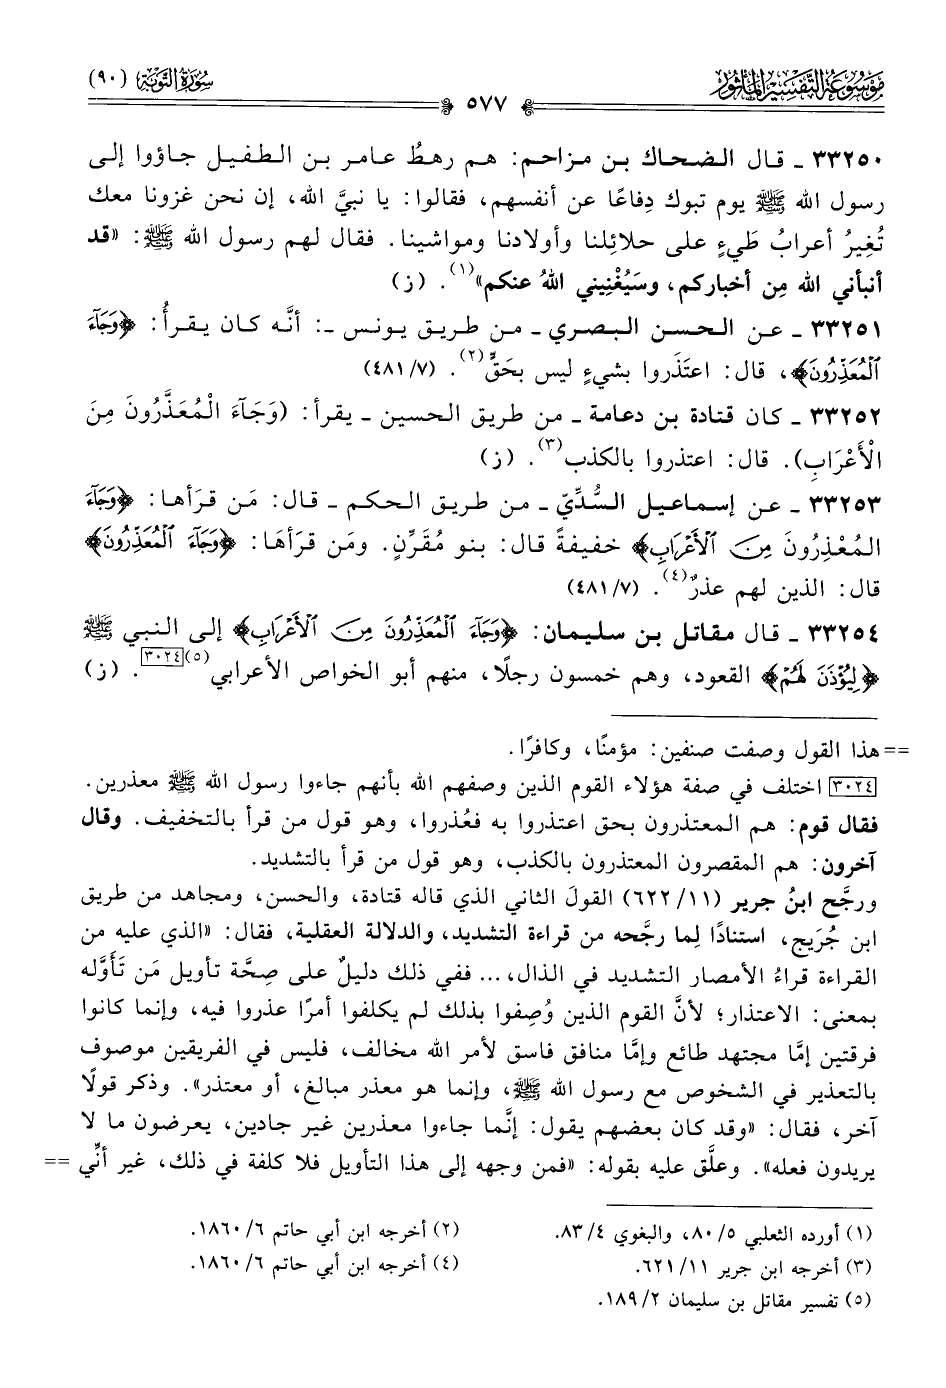 موسوعة التفسير المأثور
سورة التوبة (٩٠)
٥٧٧
٣٣٢٥٠ ـ قال الضحاك بن مزاحم: هم رهطُ عامر بن الطفيل جاؤوا إلى
رسول الله ﷺ يوم تبوك دِفاعًا عن أنفسهم، فقالوا: يا نبيَّ الله، إن نحن غزونا معك
تُغِيرُ أعرابُ طَيءٍ على حلائِلنا وأولادنا ومواشينا. فقال لهم رسول الله ﷺ: «قد
أنبأني الله مِن أخباركم، وسَيُغْنِيني اللهُ عنكم»(١). (ز)
٣٣٢٥١ ـ عن الحسن البصري ـ من طريق يونس ـ: أنَّه كان يقرأُ: ﴿وَجَآءَ
ٱلْمُعَذِّرُونَ﴾، قال: اعتَذَروا بشيءٍ ليس بحَقٍّ(٢). (٧/ ٤٨١)
٣٣٢٥٢ ـ كان قتادة بن دعامة ـ من طريق الحسين ـ يقرأ: (وَجَآءَ الْمُعَذَّرُونَ مِنَ
الْأَعْرَابِ). قال: اعتذروا بالكذب(٣). (ز)
٣٣٢٥٣ ـ عن إسماعيل السُّدِّيّ ـ من طريق الحكم ـ قال: مَن قرَأها: ﴿وَجَآءَ
المُعْذِرُونَ مِنَ ٱلْأَعْرَابِ﴾ خفيفةً قال: بنو مُقَرِّنٍ. ومَن قرَأها: ﴿وَجَآءَ ٱلْمُعَذِّرُونَ﴾
قال: الذين لهم عذرٌ(٤). (٧/ ٤٨١)
٣٣٢٥٤ ـ قال مقاتل بن سليمان: ﴿وَجَآءَ ٱلْمُعَذِّرُونَ مِنَ ٱلْأَعْرَابِ﴾ إلى النبي ﷺ
﴿لِيُؤْذَنَ لَهُمْ﴾ القعود، وهم خمسون رجلًا، منهم أبو الخواص الأعرابي(٥)[٣٠٢٤]. (ز)
== هذا القول وصفت صنفين: مؤمنًا، وكافرًا.
[٣٠٢٤] اختلف في صفة هؤلاء القوم الذين وصفهم الله بأنهم جاءوا رسول الله ﷺ معذرين.
فقال قوم: هم المعتذرون بحق اعتذروا به فعُذروا، وهو قول من قرأ بالتخفيف. وقال
آخرون: هم المقصرون المعتذرون بالكذب، وهو قول من قرأ بالتشديد.
ورجَّح ابنُ جرير (١١/ ٦٢٢) القولَ الثاني الذي قاله قتادة، والحسن، ومجاهد من طريق
ابن جُرَيج، استنادًا لِما رجَّحه من قراءة التشديد، والدلالة العقلية، فقال: «الذي عليه من
القراءة قراءُ الأمصار التشديد في الذال،... ففي ذلك دليلٌ على صِحَّة تأويل مَن تَأَوَّله
بمعنى: الاعتذار؛ لأنَّ القوم الذين وُصِفوا بذلك لم يكلفوا أمرًا عذروا فيه، وإنما كانوا
فرقتين إمَّا مجتهد طائع وإمَّا منافق فاسق لأمر الله مخالف، فليس في الفريقين موصوف
بالتعذير في الشخوص مع رسول الله ﷺ، وإنما هو معذر مبالغ، أو معتذر». وذكر قولًا
آخر، فقال: «وقد كان بعضهم يقول: إنَّما جاءوا معذرين غير جادين، يعرضون ما لا
يريدون فعله». وعلَّق عليه بقوله: «فمن وجهه إلى هذا التأويل فلا كلفة في ذلك، غير أنِّي ==
(١) أورده الثعلبي ٥/ ٨٠، والبغوي ٤/ ٨٣.
(٢) أخرجه ابن أبي حاتم ٦/ ١٨٦٠.
(٣) أخرجه ابن جرير ١١/ ٦٢١.
(٤) أخرجه ابن أبي حاتم ٦/ ١٨٦٠.
(٥) تفسير مقاتل بن سليمان ٢/ ١٨٩.